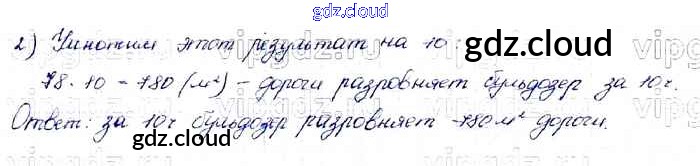 gdz.cloud
2) Умножим этот результат на 10:
gdz.cloud
78·10 = 780 (м²) – дороги разровняет бульдозер за 10 ч.
Ответ: за 10 ч бульдозер разровняет 780 м² дороги.
gdz.cloud